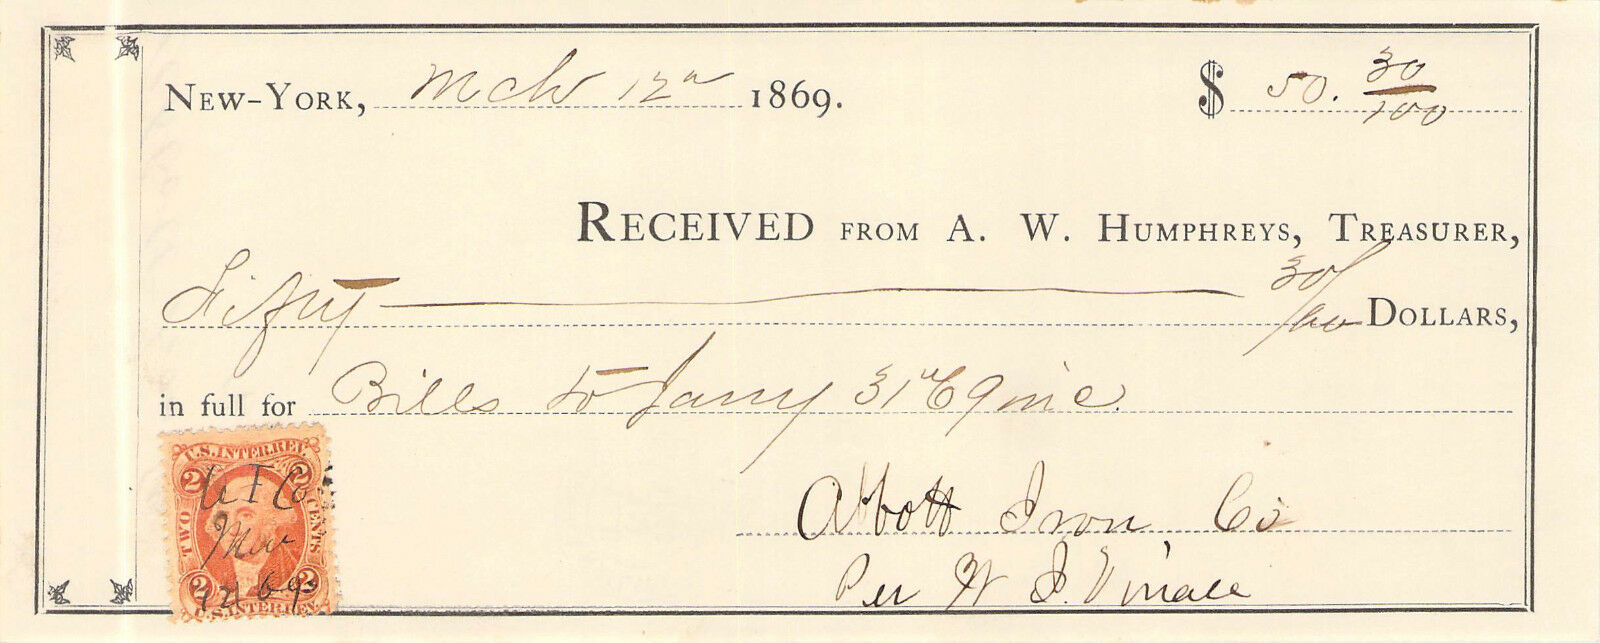 New-York, Mch 12th 1869. $ 50. 30/100
Received from A. W. Humphreys, Treasurer,
Fifty 30/100 Dollars,
in full for Bills to Jany 31st inc.
U.S. INTER. REV.
2 2
TWO CENTS
A I Co
Mar
12 69
2 2
U.S. INTER. REV.
Abbott Iron Co
Per W